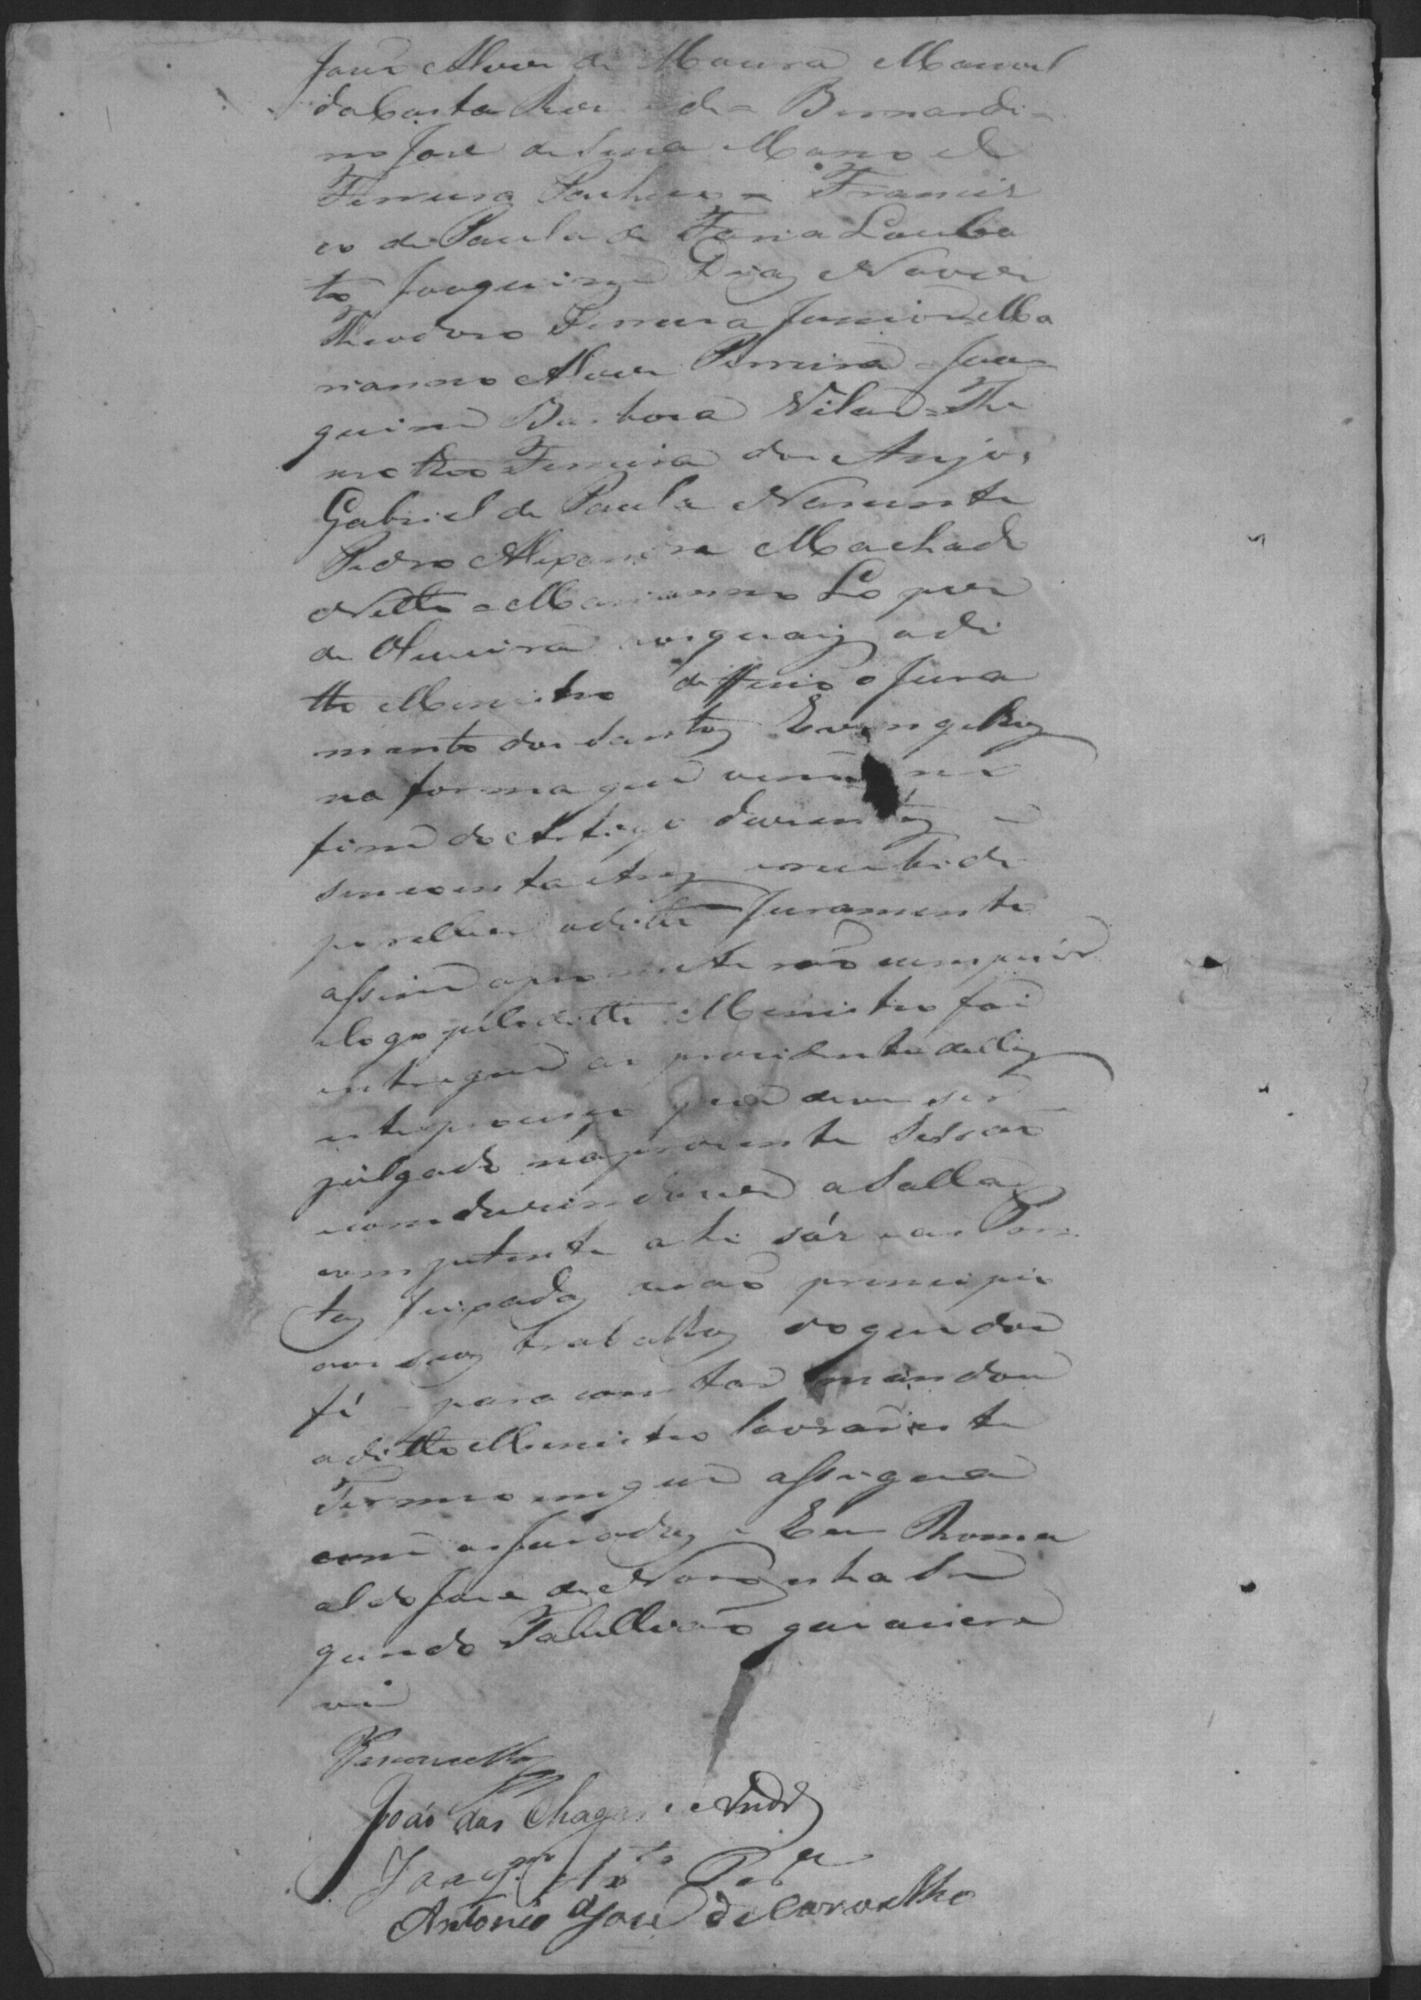 José Alves de Moura Manoel
da Costa Rezende = Bernardi-
no José de Sena Manoel
Ferreira Pacheco = Francis
co de Paula de Faria Louba
to Joaquim Dias Novais
Theodoro Ferreira Junior = Ma
rianno Alves Ferreira = Joa-
quim Barbosa Vilar = Thi
motheo Ferreira dos Anjos
Gabriel de Paula Nasente
Pedro Alexandre Machado
Netto = Marianno Lopes
de Oliveira aos quais o di
tto Ministro defferio o Jura
mento dos Santos Evangelhos
na forma que vem no
fim do Artigo duzentos e
sincoenta e tres e recebido
por elles o ditto Juramento
assim o prometterão cumprir
e logo pelo ditto Ministro foi
entregue ao prezidente delles
este processo que deve ser
julgado na prezente Sessão
e conduzindo-se a Salla
competente ahi sós e as Por
tas feixadas derão principio
aos seos trabalhos do que dou
fé e para constar mandou
o ditto Ministro lavrar este
Termo em que assigna
com os Jurados e Eu Roma
aldo José de Noronha Se
gundo Tabellião que escre
vi
Vasconcellos
João das Chagas e Andre
Joaqm Per
Antonio José de Carvalho